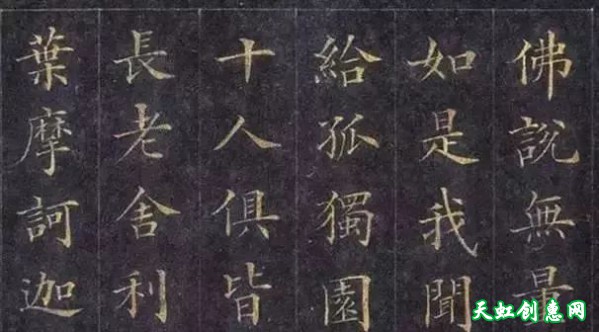 佛說無量
如是我聞
給孤獨園
十人俱皆
長老舍利
葉摩訶迦
天虹创惠网